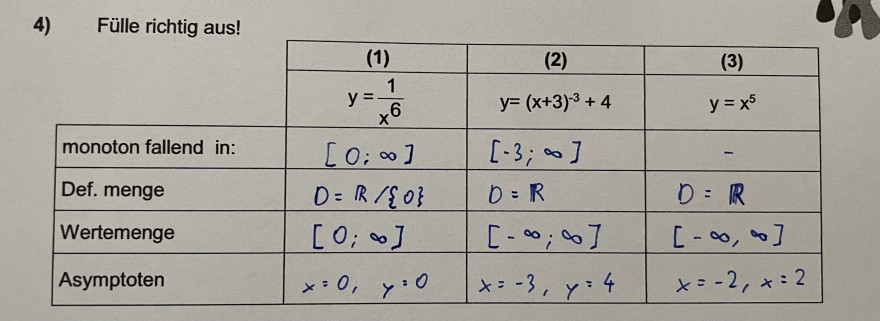 4) Fülle richtig aus!
(1) (2) (3)
y = 1/x⁶ y= (x+3)⁻³ + 4 y = x⁵
monoton fallend in: [0; ∞] [-3; ∞] -
Def. menge D = ℝ /{0} D = ℝ D = ℝ
Wertemenge [0; ∞] [-∞; ∞] [-∞, ∞]
Asymptoten x = 0, y = 0 x = -3, y = 4 x = -2, x = 2